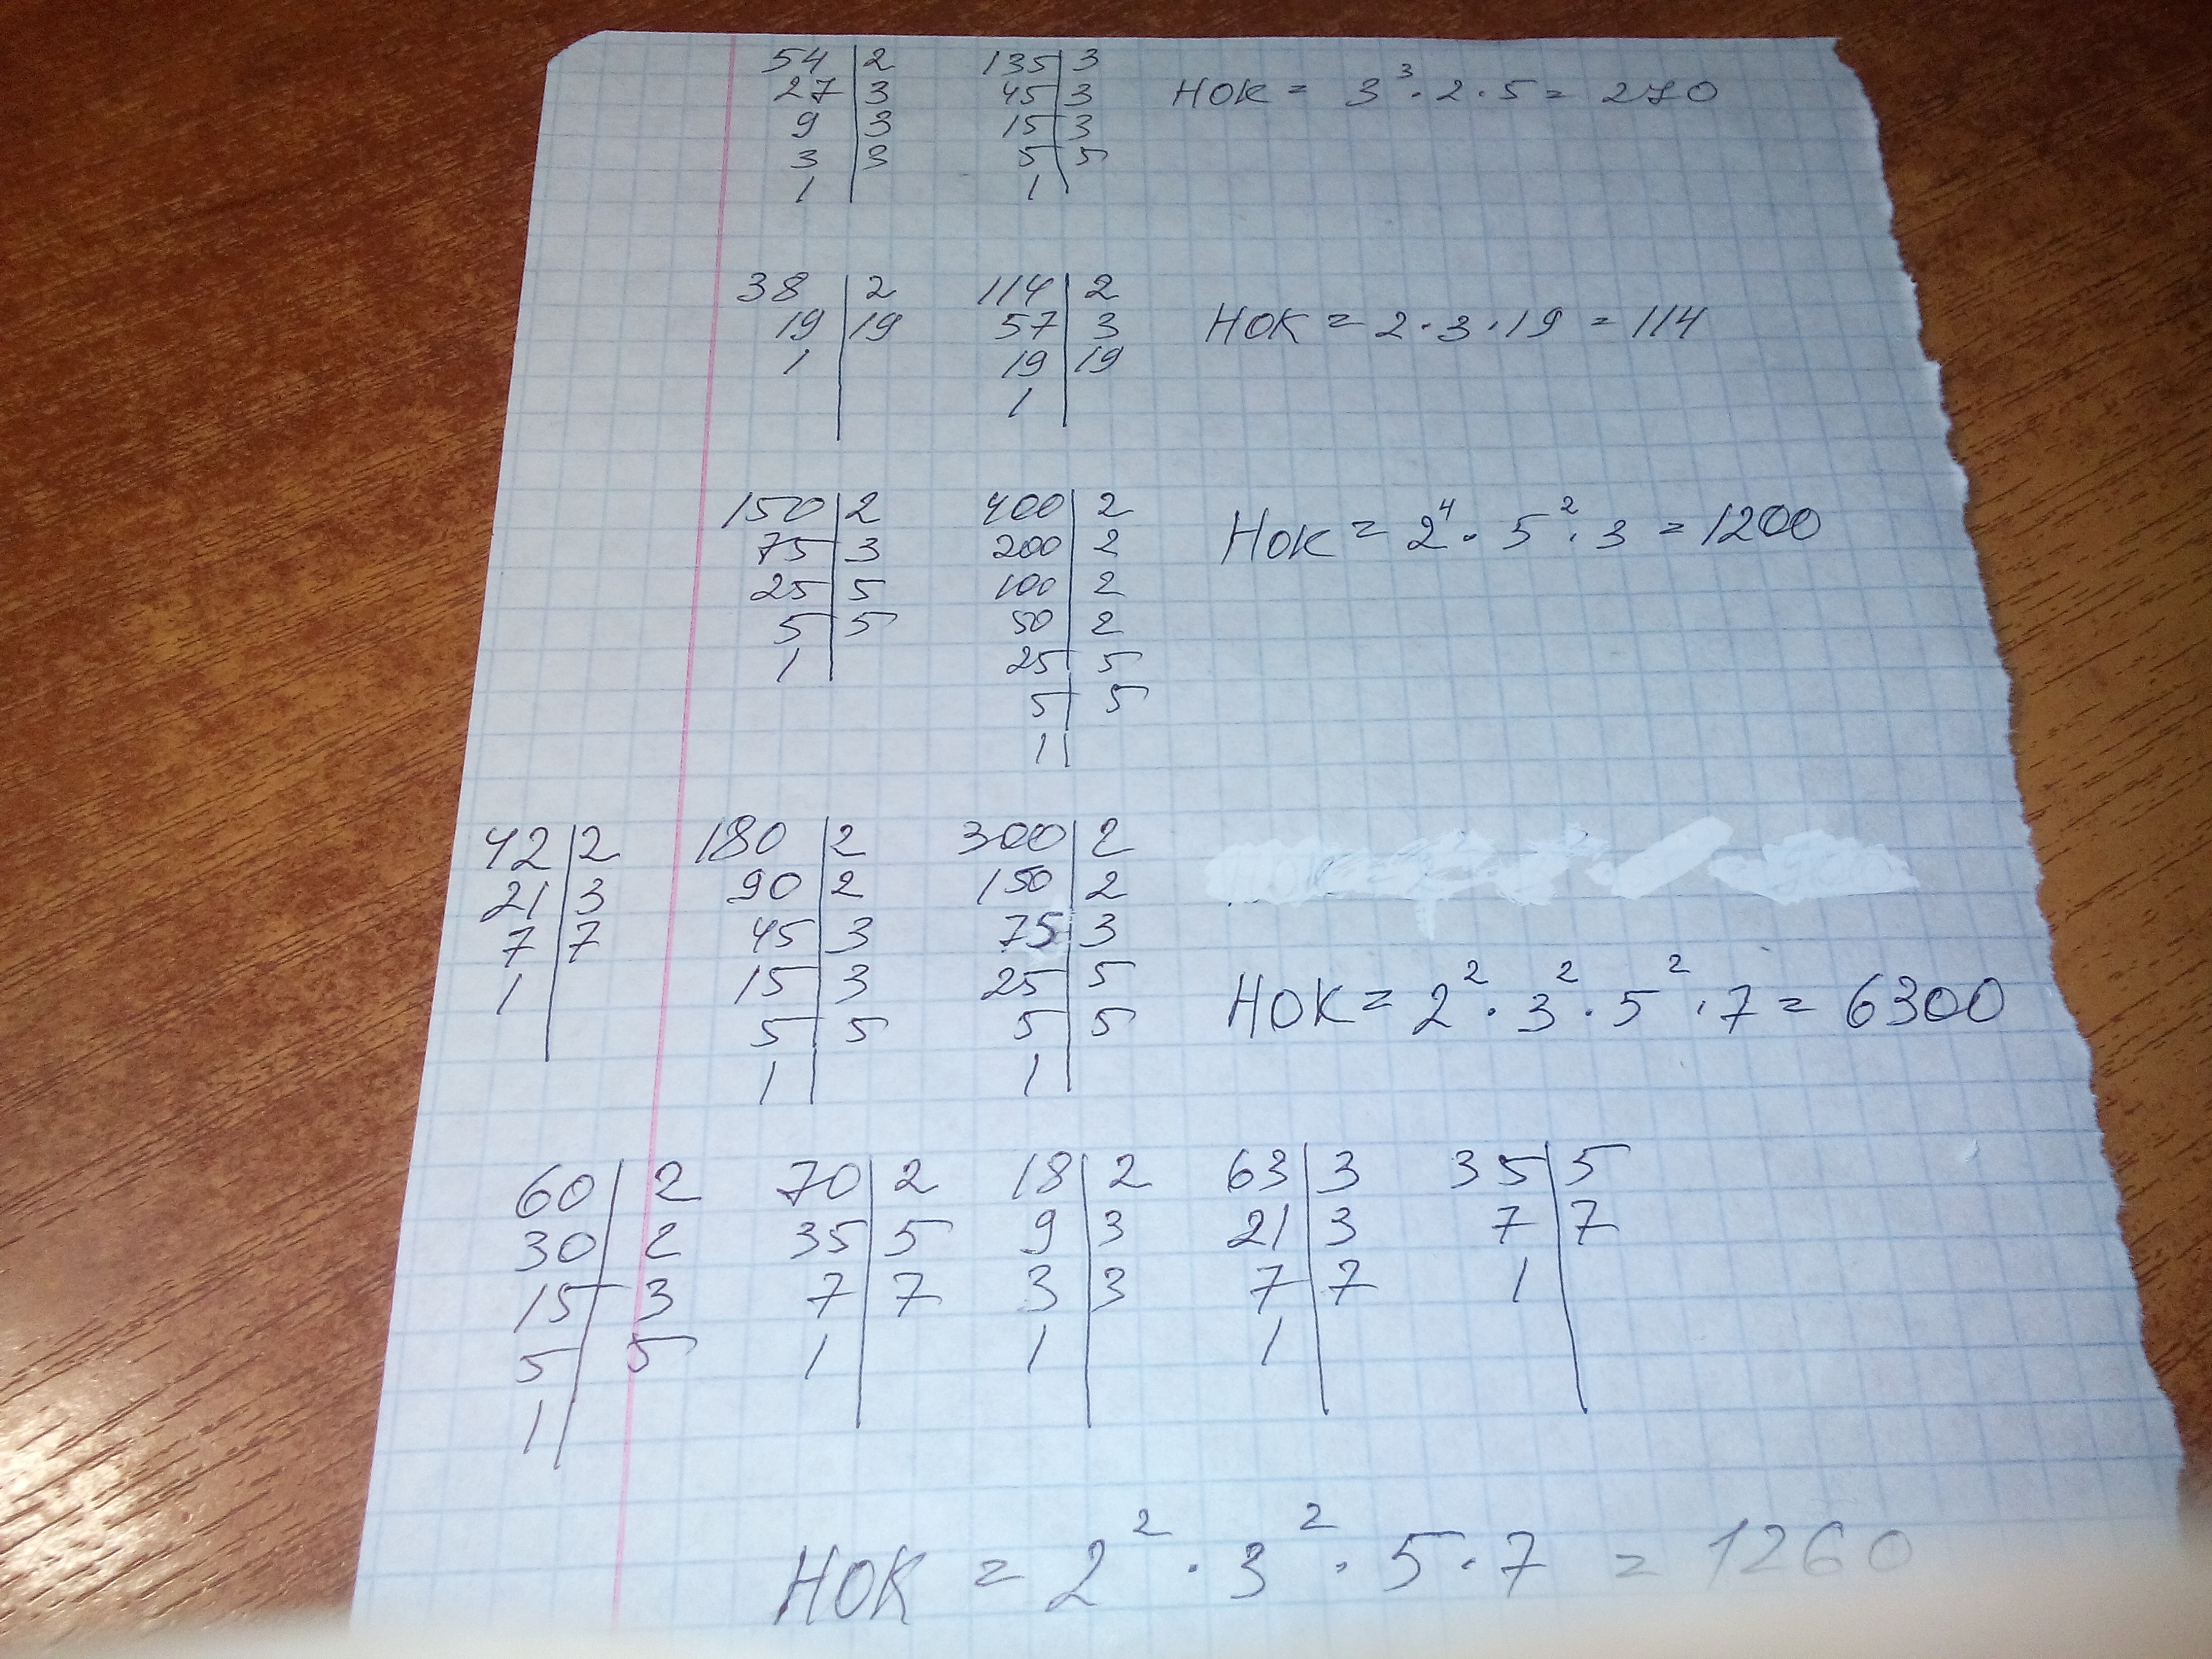 54 | 2 135 | 3 НОК = 3³ · 2 · 5 = 270
27 | 3 45 | 3
9 | 3 15 | 3
3 | 3 5 | 5
1 | 1 |
38 | 2 114 | 2
19 | 19 57 | 3 НОК = 2 · 3 · 19 = 114
1 | 19 | 19
1 |
150 | 2 400 | 2 НОК = 2⁴ · 5² · 3 = 1200
75 | 3 200 | 2
25 | 5 100 | 2
5 | 5 50 | 2
1 | 25 | 5
5 | 5
1 |
42 | 2 180 | 2 300 | 2
21 | 3 90 | 2 150 | 2
7 | 7 45 | 3 75 | 3
1 | 15 | 3 25 | 5 НОК = 2² · 3² · 5² · 7 = 6300
5 | 5 5 | 5
1 | 1 |
60 | 2 70 | 2 18 | 2 63 | 3 35 | 5
30 | 2 35 | 5 9 | 3 21 | 3 7 | 7
15 | 3 7 | 7 3 | 3 7 | 7 1 |
5 | 5 1 | 1 | 1 |
1 |
НОК = 2² · 3² · 5 · 7 = 1260